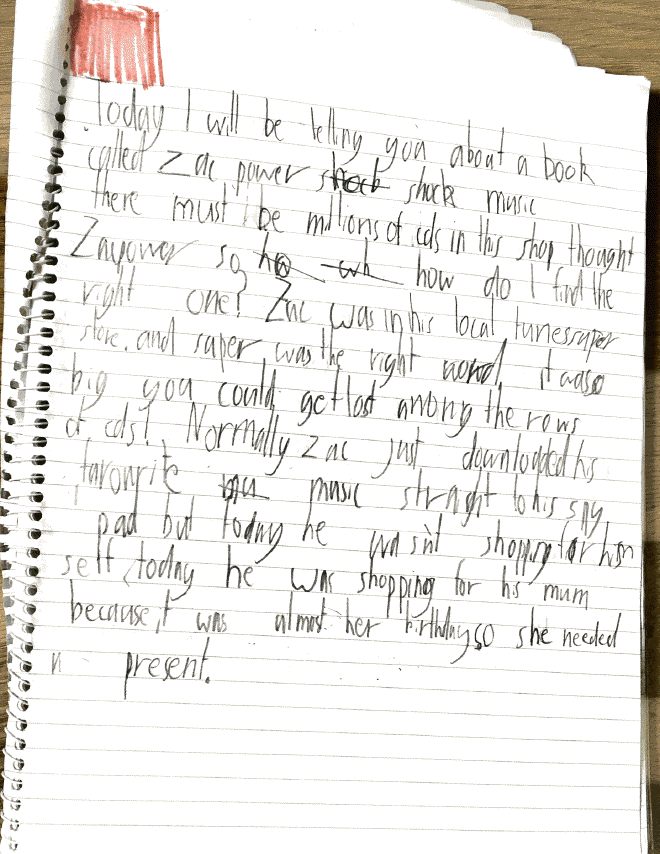 Today I will be telling you about a book
called Zac power shock music
there must be millions of cds in this shop thought
Zapower so how do I find the
right one? Zac was in his local tunesuper
store. and super was the right word, it was so
big you could get lost among the rows
of cds! Normally Zac just downloaded his
favourite music straght to his spy
pad but today he wasn't shopping for him
self, today he was shopping for his mum
because it was almost her birthday so she needed
a present.